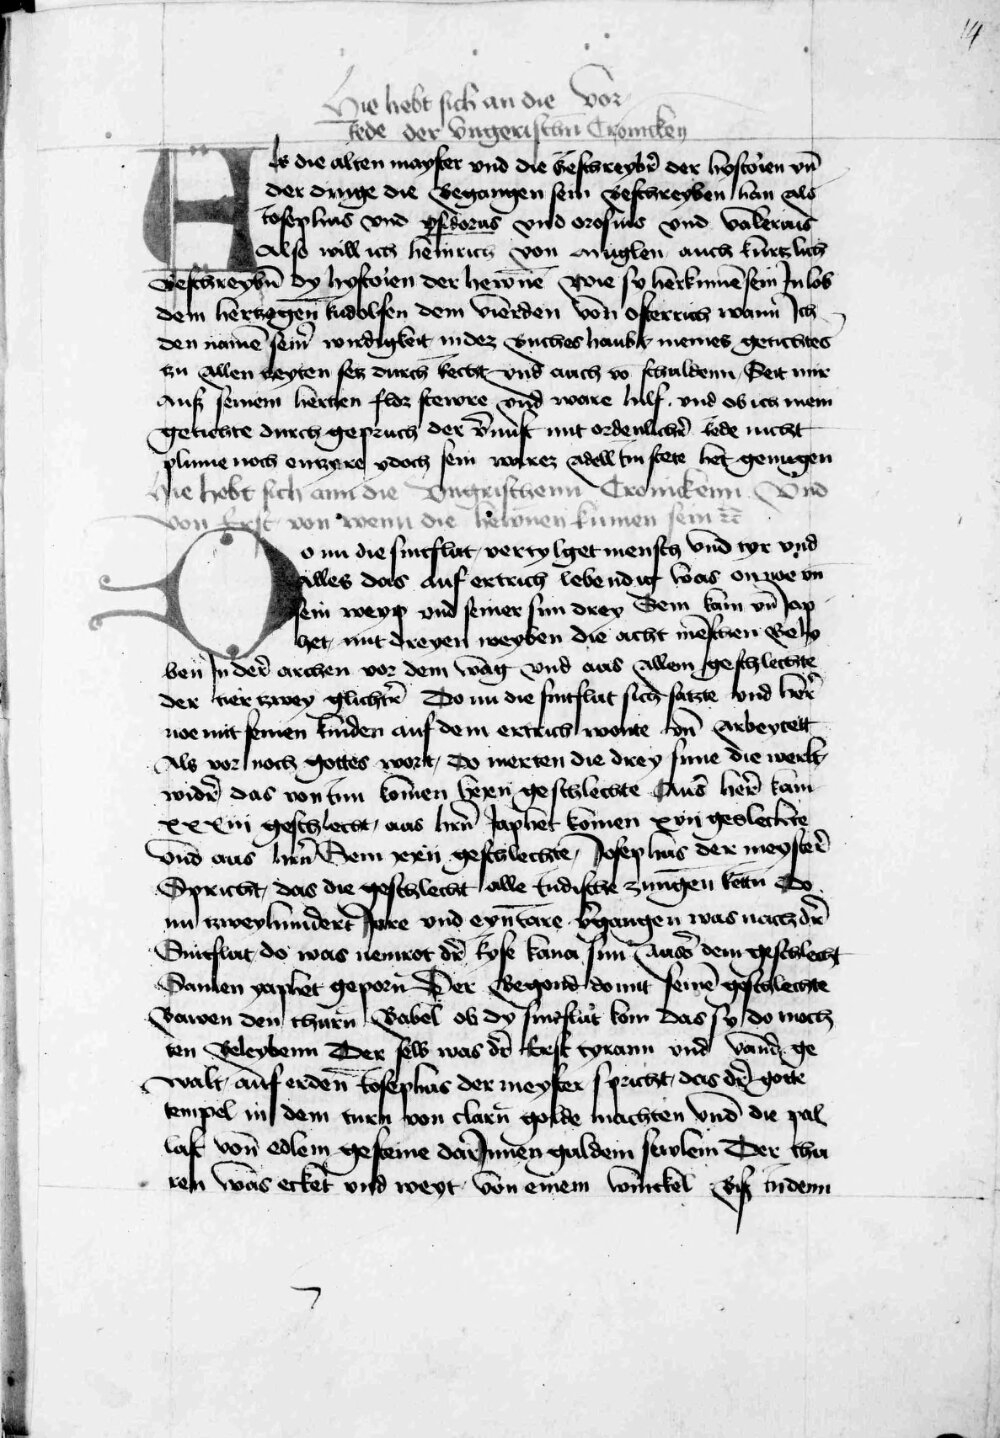 14
Hie hebt sich an die Vor
rede der Vngerischñ Cronicken
Als die alten mayster vnd die Geschreybr̃ der hystorien vñ
der dinge die Begangen sein Beschreyben han Als
Josephus vnd ysidorus vnd orosius vnd valerius
Also will ich heinrich von Muglen auch kurtzlich
Beschreybñ dy hystorien der hewnẽ Wie sy herkumẽ sein Jn lob
dem hertzogen̄ Rudolfen dem vierden von Osterrich wann Ich
den namẽ seinr̃ wirdigkeit in dez Buches haubt meines getichtes
zu allen zeyten setz durch recht vnd auch vo schulden Seit mir
Auß seinem herczen flos stewre vnd ware hilf. vnd ob ich mein
getichte durch gepruch der v̄nuft mit ordenlichr̃ rede nicht
plume noch encziere ydoch sein warez Adell tut stete het genugen
Hie hebt sich ann die Vngrischenn Cronickenn Vnd
von Erst von wenn die hewnen kumen sein
Do nu die sintflut vertylget mensch vnd tyr vnd
Alles das auf ertrich lebendig was on noe vñ
sein weyp vnd seiner sun drey Sem kam vñ Jap
het mit dreyen weyben die acht mẽschen Bely
ben Jn der archen vor dem wag vnd aus allem geschlechte
der tier zwey glichtr̃ Do nu die sintflut sich satzte vnd her̃
noe mit seinen kinden auf dem ertrich wonte vñ Arbeytett
Als vor noch gottes wort Do merten die drey sune die werlt
widr̃ das von im komen lxxii geschlechte Auß her̃ kam
xxxiii geschlecht, aus hrñ Japhet komen xvii geslechte
vnd aus hrñ Sem xxii geschlechte, Josephus der meyster
Spricht, das die geschlecht alle Judische zungen retñ Do
nu zweyhundert Jare vnd eyn Jare v̄gangen was nach dr̃
Sintflut do was nemrot dr̃ ryse kana sun Auss dem geschlecht
Samen yaphet geporn Der Begond do mit seinẽ geschlechte
Bawen den thurn Babel ob dy sintflut kom das sy do moch
ten Beleybenn Der selb was dr̃ Erst tyrann vnd vand ge
walt auf erden Josephus der meyster spricht, das dr̃ gotte
tempel in dem turn von clarñ golde machten vnd die pal
last von edlem gesteine dar Jnnen guldein sewlein Der thu
ren was ecket vnd weyt von einem winckel Biß in denn